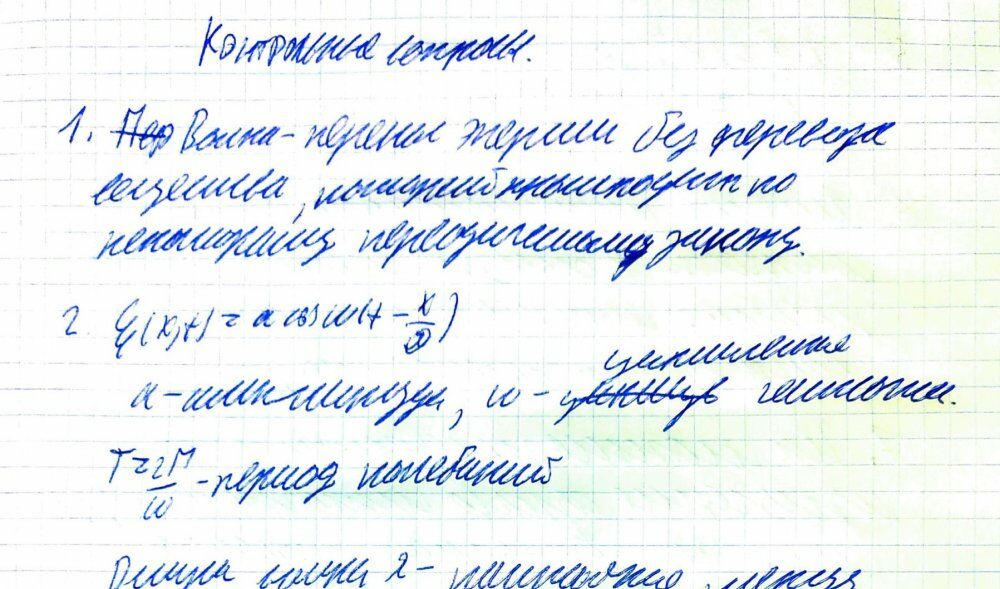 Контрольные вопросы.
1. Волна - перенос энергии без перевода
вещества, по
некоторому переодическому закону.
2. ξ(x,t) = a cos ω(t - x/υ)
a - амплитуда, ω - циклическая частота.
T = 2П/ω - период колебаний
Длина волны λ - расстояние между